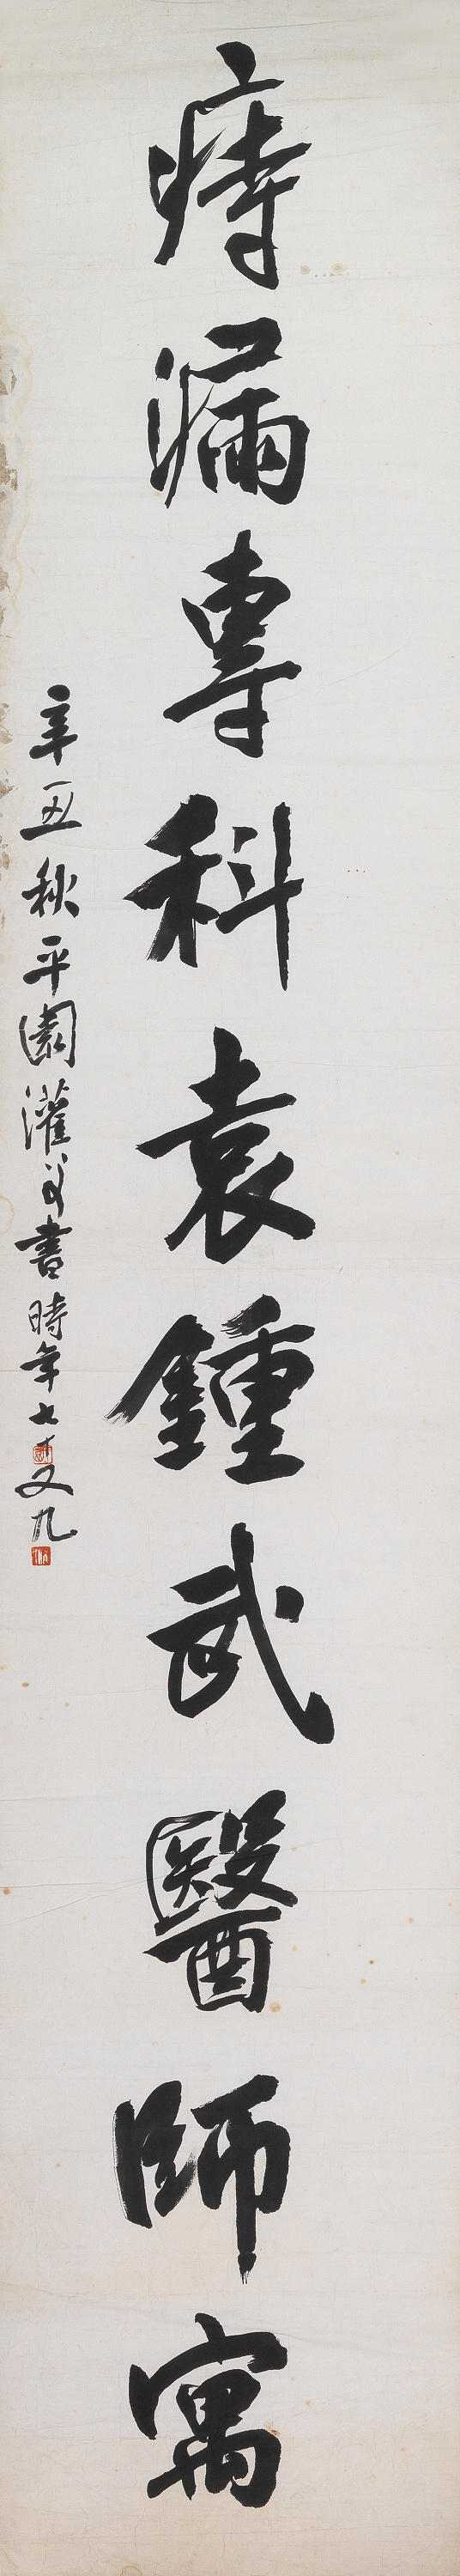 痔漏專科袁鍾武醫師寓
辛丑秋平園灌父書時年七十又九